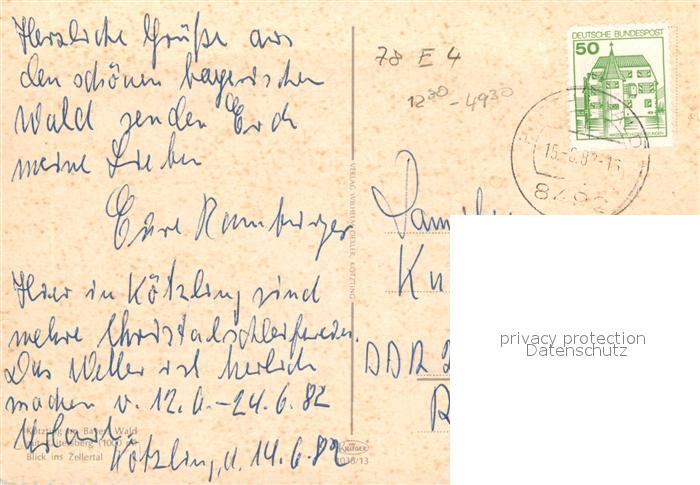 Herzliche Grüße aus
den schönen bayerischen
Wald senden Euch
meine Lieben
Eure Ramburger
Hier in Kötzting sind
mehre Christalschleifereien.
Das Wetter ist herlich
machen v. 12.6.-24.6.82
Urlaub.
Kötzting, d. 14.6.82
Kötzting im Bayer. Wald
Blick ins Zellertal
VERLAG WILHELM OELLER, KÖTZTING
KRÜGER
1038/13
78 E 4
12 30 - 49 30
DEUTSCHE BUNDESPOST
50
15.-6.82-16
8492
Familie
DDR
privacy protection
Datenschutz